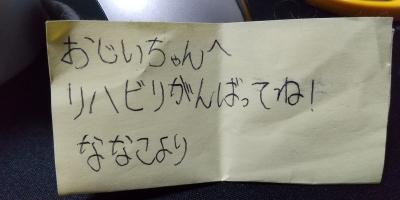 おじいちゃんへ
リハビリがんばってね!
ななこより